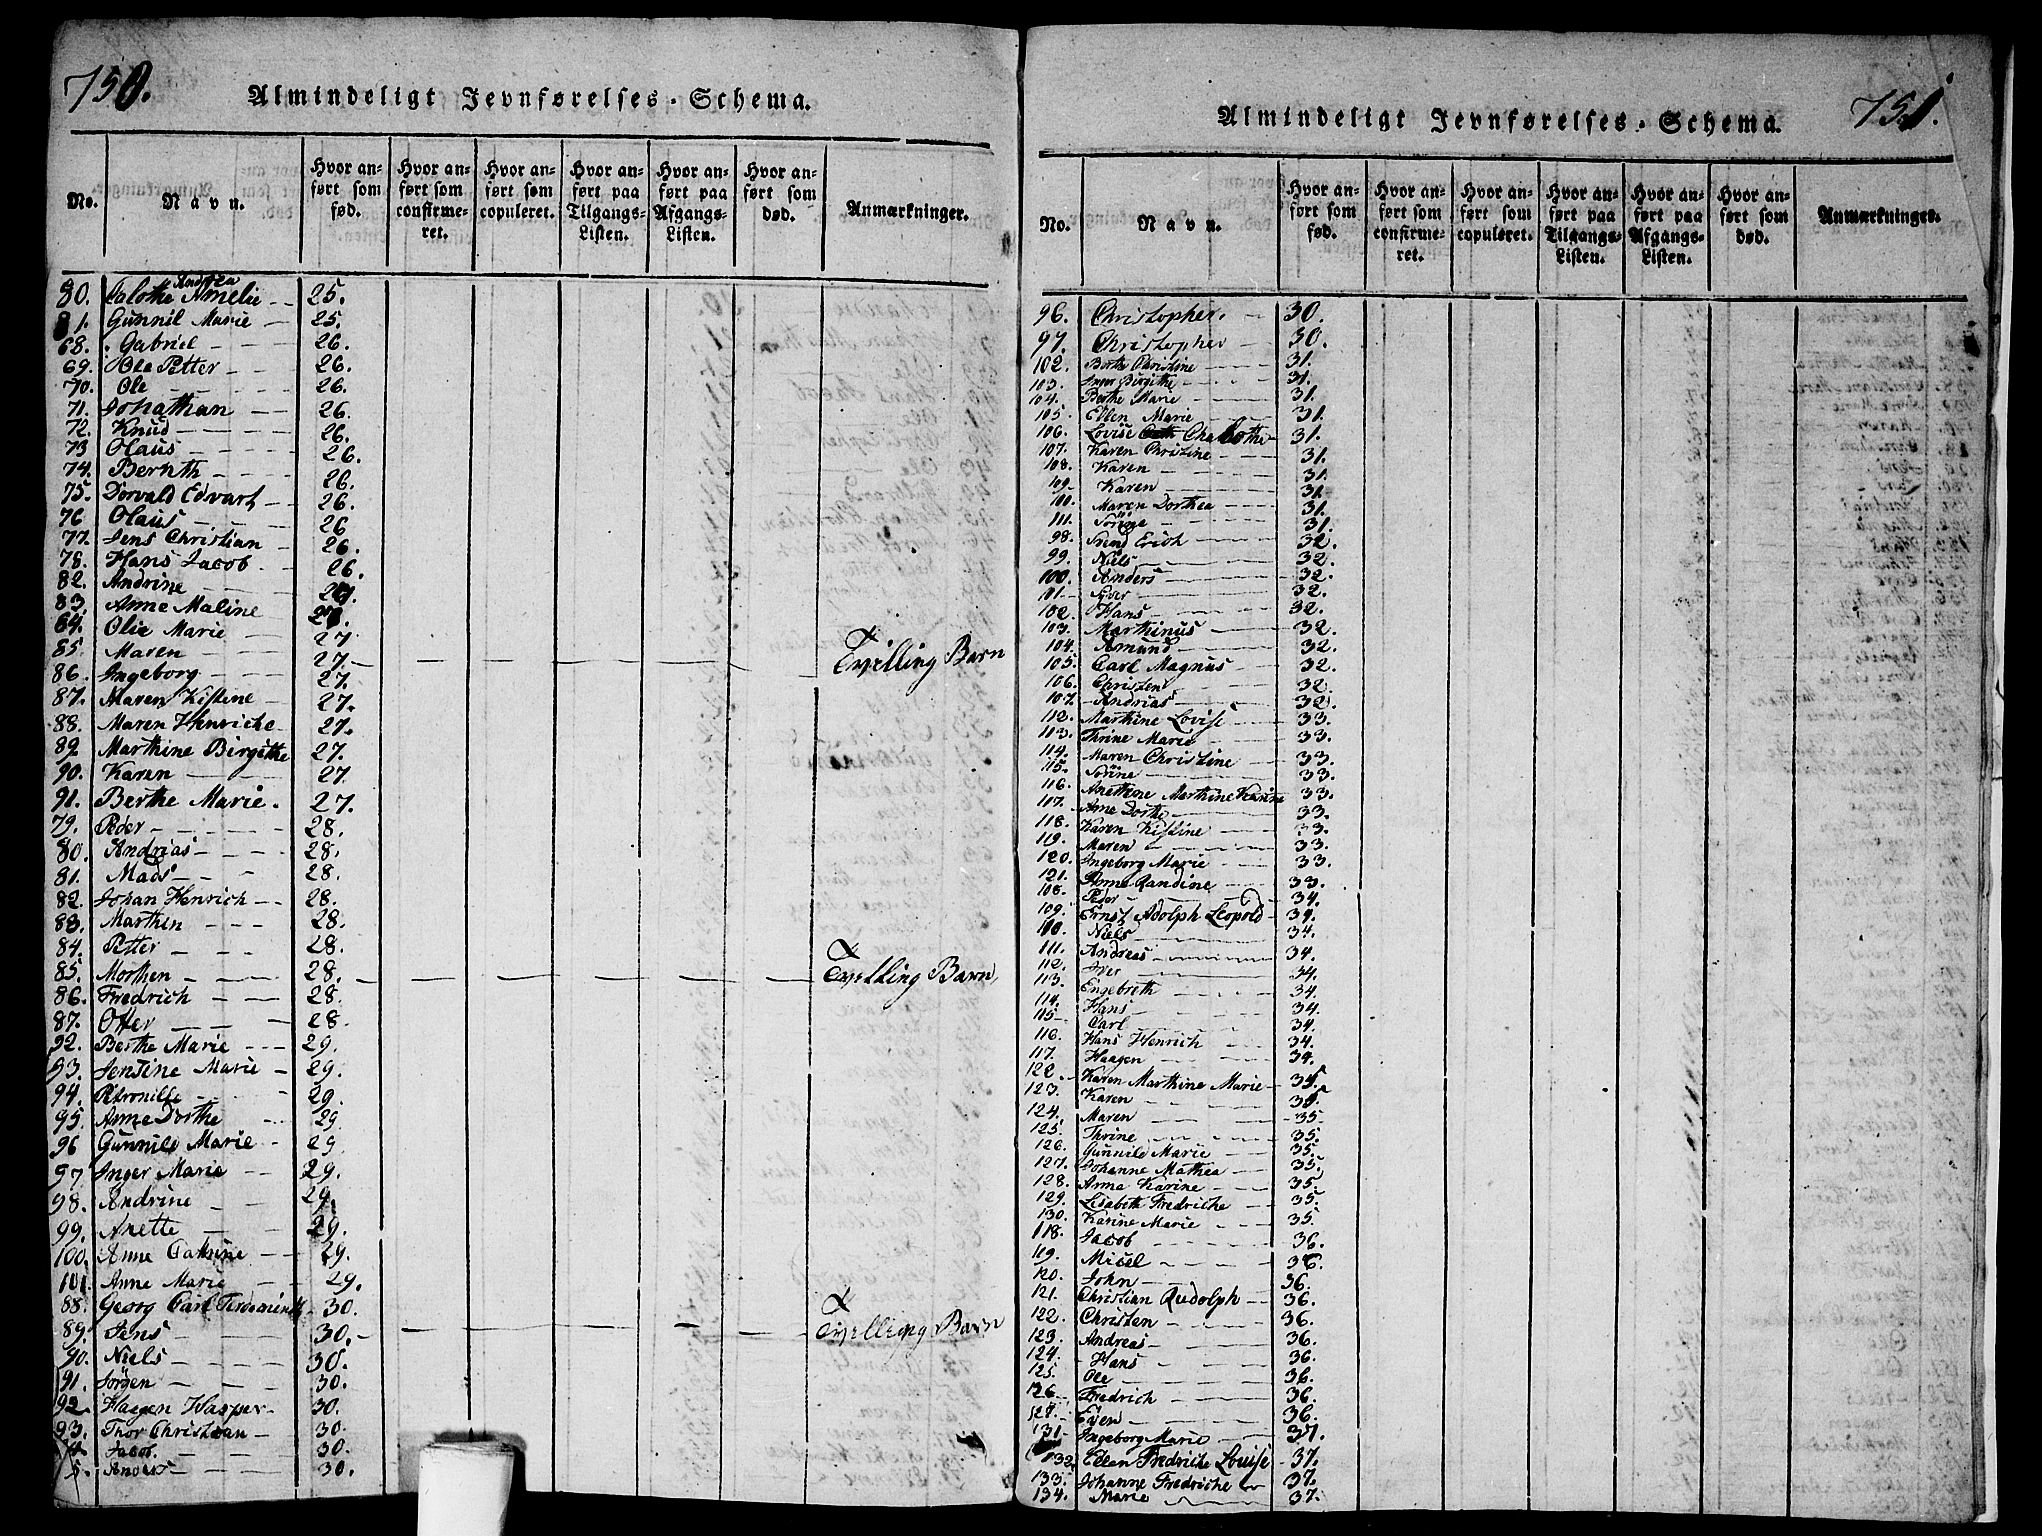 750.
Almindeligt Jevnførelses-Schema.
No.
Navn.
Hvor anført som fød.
Hvor anført som confirmeret.
Hvor anført som copuleret.
Hvor anført paa Tilgangs-Listen.
Hvor anført paa Afgangs-Listen.
Hvor anført som død.
Anmærkninger.
Andrea
80. Calothe Amelie 25.
81. Gunnil Marie 25.
68. Gabriel 26.
69. Ole Petter 26.
70. Ole 26.
71. Johathan 26.
72. Knud 26.
73 Olaus 26.
74. Bernth 26.
75. Dorvald Edvart 26.
76 Olaus 26
77. Jens Christian 26.
78. Hans Jacob 26.
82. Andrine 27.
83. Anne Maline 27.
84. Olie Marie 27
85 Maren 27. Tvilling Barn
86. Ingeborg 27.
87. Maren Kistine 27.
88. Maren Henriche 27.
89 Marthine Birgithe 27.
90. Karen 27.
91. Berthe Marie. 27.
79. Peder 28.
80. Andrias 28.
81. Mads 28.
82. Johan Henrich 28.
83. Marthin 28.
84. Petter 28.
85. Morthen 28. Tvilling Barn
86. Fredrich 28.
87. Otter 28.
92. Berthe Marie 29.
93. Jensine Marie 29.
94. Petronille 29.
95. Anne Dorthe 29.
96 Gunnild Marie 29.
97. Inger Marie 29.
98. Andrine 29.
99. Anette 29.
100. Anne Cathrine 29.
101. Anne Marie 29.
88. Georg Carl Ferdeminth 30.
89. Jens 30. Tvilling Barn
90. Niels 30.
91. Jørgen 30.
92. Haagen Wasper 30.
93. Thor Christian 30.
Jacob 30.
Anders 30.
751.
Almindeligt Jevnførelses-Schema.
No.
Navn.
Hvor anført som fød.
Hvor anført som confirmeret.
Hvor anført som copuleret.
Hvor anført paa Tilgangs-Listen.
Hvor anført paa Afgangs-Listen.
Hvor anført som død.
Anmærkninger.
96. Christopher. 30.
97. Christopher 30.
102. Berthe Christine 31.
103. Inger Birgithe 31.
104. Berthe Marie 31.
105. Ellen Marie 31.
106. Lovise Chalothe 31.
107. Karen Christine 31.
108. Karen 31.
109. Karen 31.
100. Maren Dorthea 31.
111. Sørine 31.
98. Svend Erich 32.
99. Niels 32.
100. Anders 32.
101. Syver 32.
102. Hans 32.
103. Marthinus 32.
104. Amund 32.
105. Carl Magnus 32.
106. Christen 32.
107. Andrias 32.
112. Marthine Lovise 33.
113. Thrine Marie 33.
114. Maren Christine 33.
115. Sørine 33.
116. Anethone Marthine Karine 33.
107. Ane Dorthe 33.
118. Karen Kistine 33.
119. Maren 33.
120. Ingeborg Marie 33.
121. Anne Randine 33.
108. Peder 34.
109. Ernst Adolph Leopold 34.
110. Niels 34.
111. Andreas 34.
112. Iver 34.
113. Engebreth 34.
114. Hans 34.
115 Carl 34.
116. Hans Henrich 34.
117. Haagen 34.
122. Karen Marthine Marie 35.
123. Karen 35.
124. Maren 35.
125. Thrine 35.
126. Gunnild Marie 35.
127. Johanne Mathea 35.
128. Anna Karine 35.
129. Lisabeth Fredriche 35.
130. Karine Marie 35.
118. Jacob 36.
119. Misel 36.
120. John 36.
121. Christian Rudolph 36.
122. Christen 36.
123. Andreas 36.
124. Hans 36.
125. Ole 36.
126. Fredrich 36.
127. Even 36.
131 Ingeborg Marie 37.
132. Ellen Fredriche Louise 37.
133. Johanne Fredriche 37.
134. Marie 37.